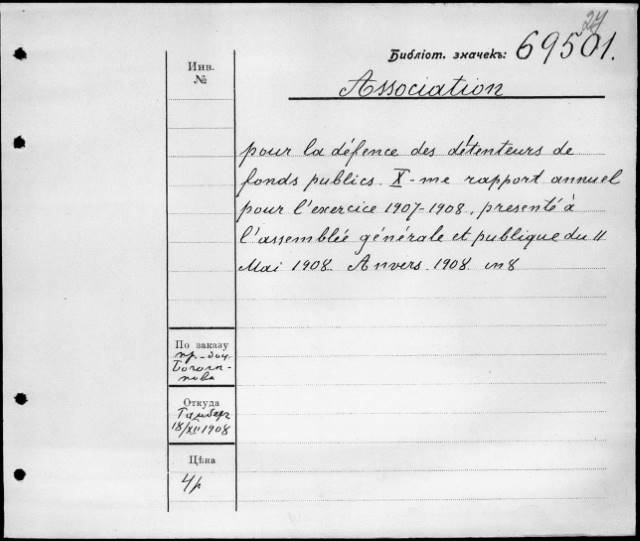 24
Библіот. значекъ: 69501.
Инв.
№
Association
pour la défence des détenteurs de
fonds publics. X-me rapport annuel
pour l'exercice 1907-1908, presenté à
l'assemblée générale et publique du 11
Mai 1908. Anvers. 1908. in 8
По заказу
пр-доц.
Боголѣ-
пова
Откуда
18/XII 1908
Цѣна
4р